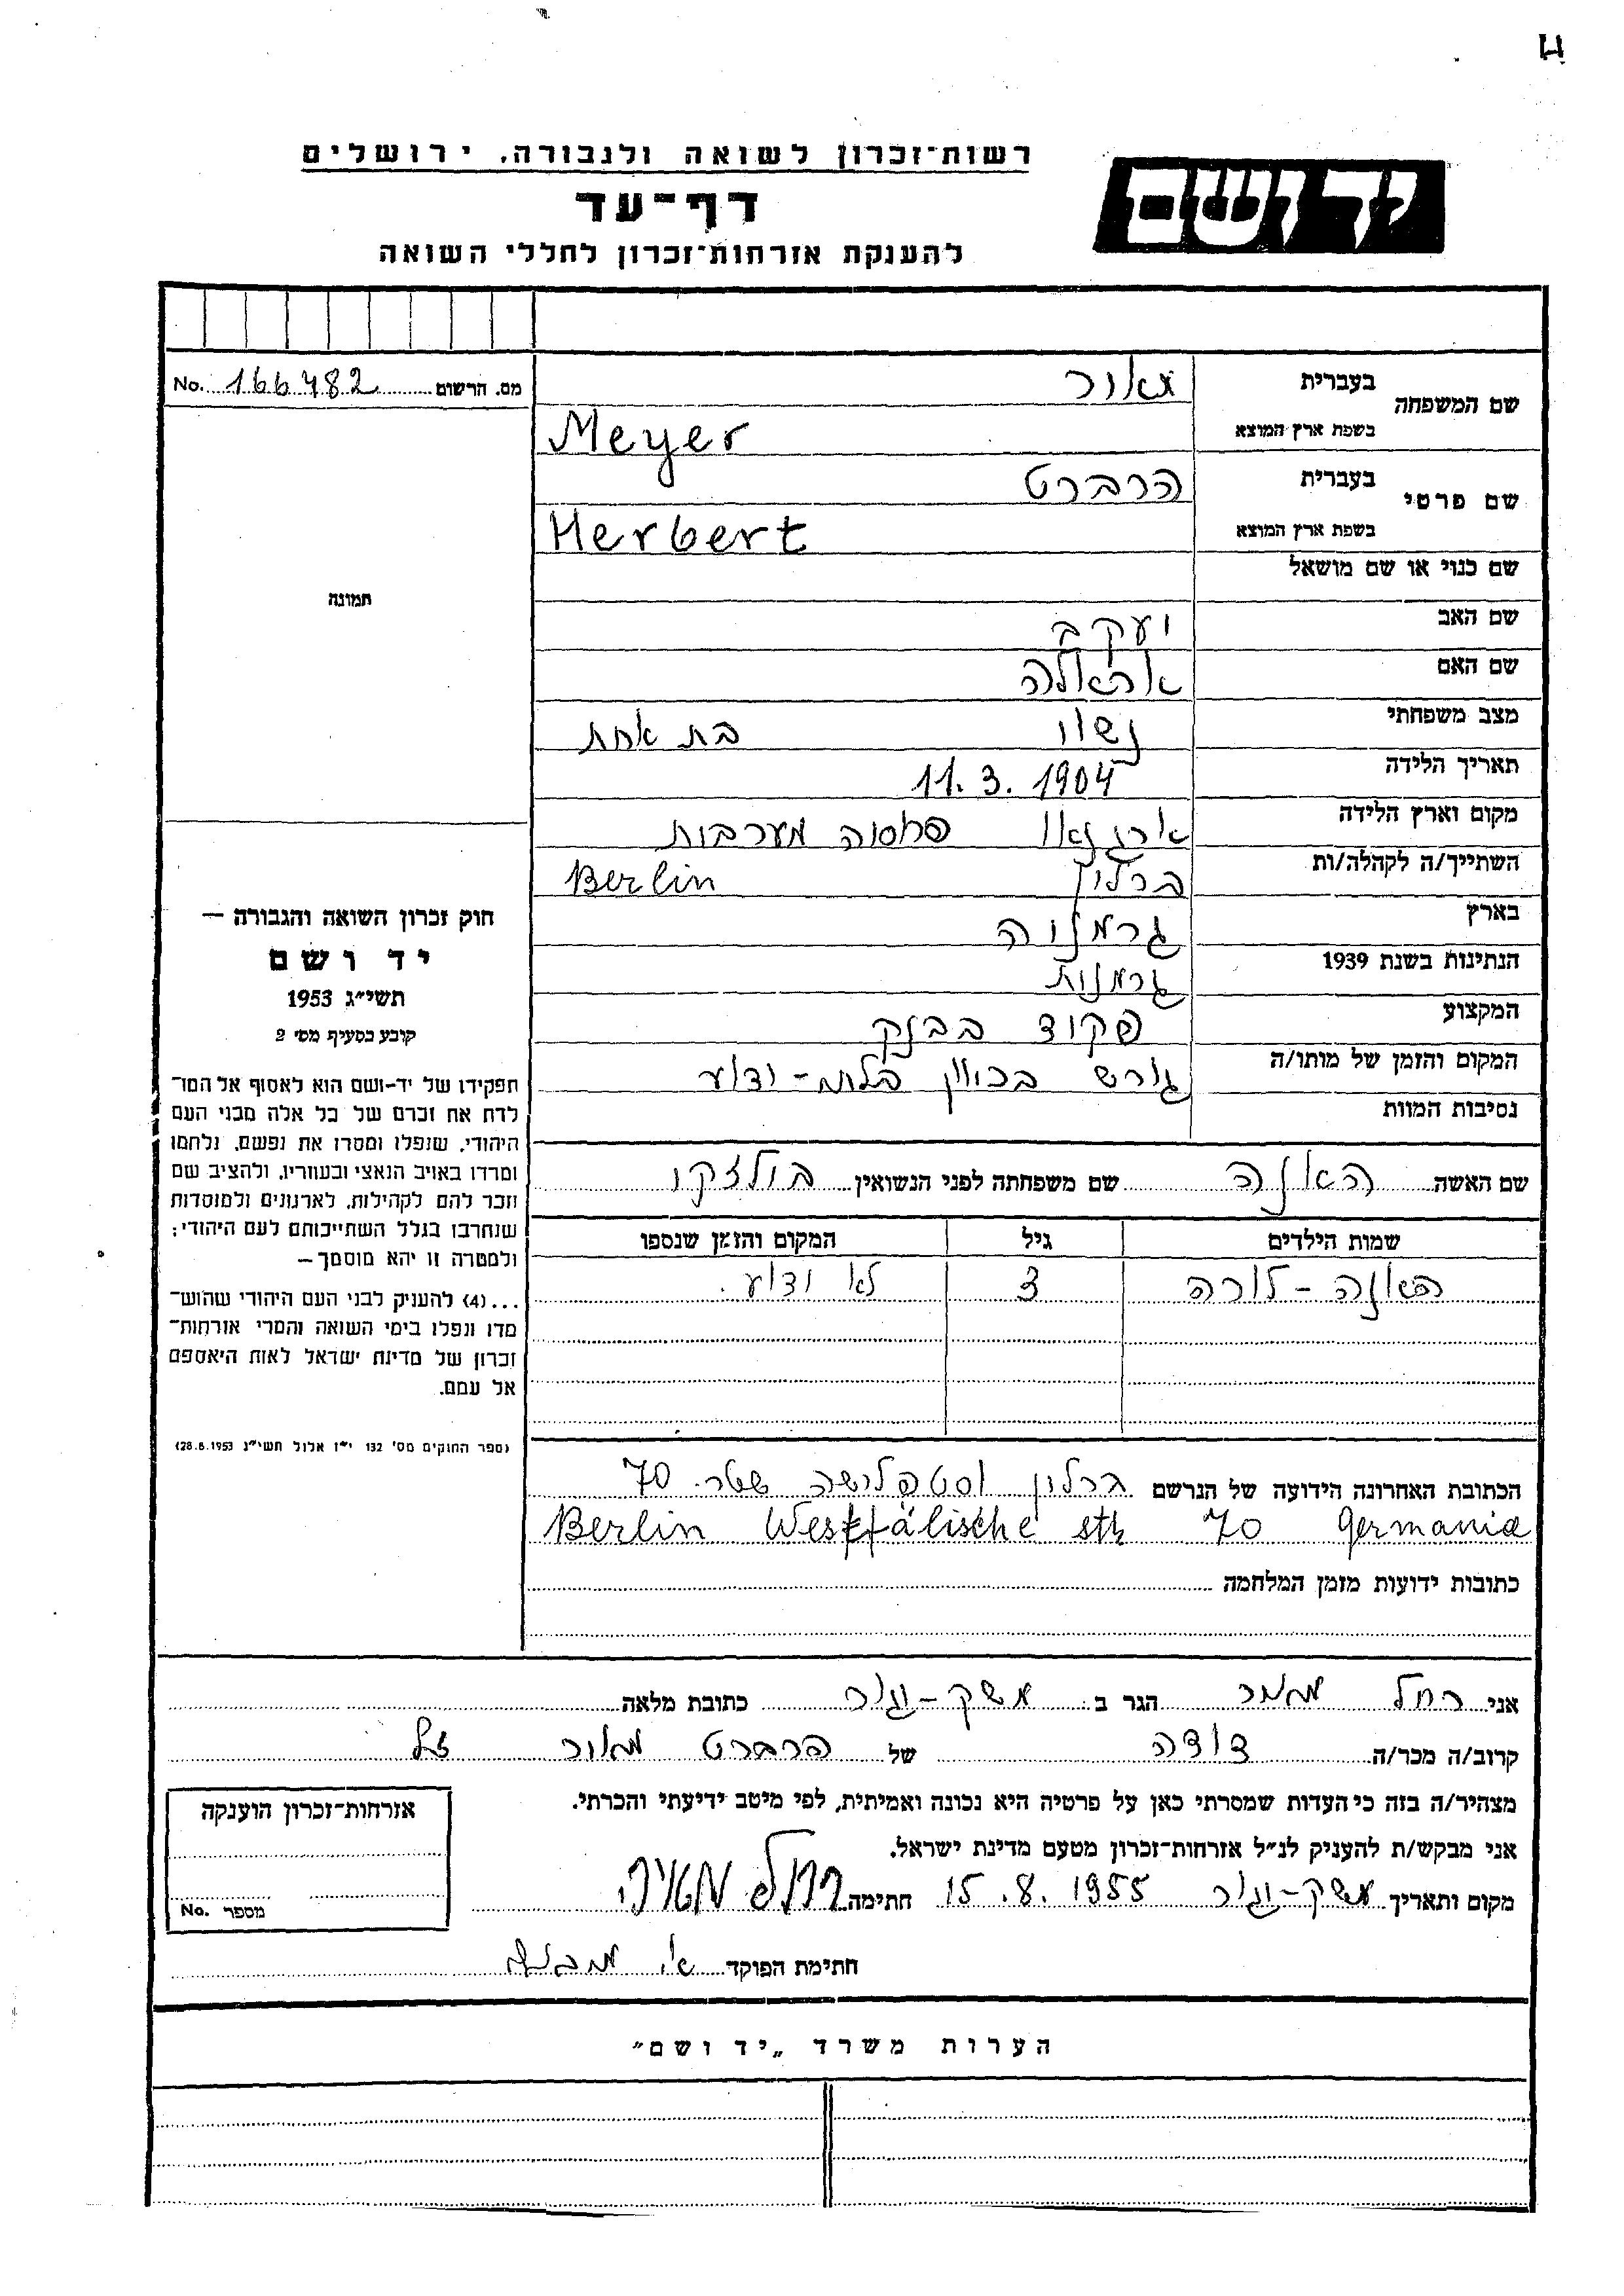 רשות־זכרון לשואה ולגבורה, ירושלים
יד ושם
דף־עד
להענקת אזרחות־זכרון לחללי השואה
מס. הרשום 166482 No.
שם המשפחה
בעברית מאיר
בשפת ארץ המוצא Meyer
שם פרטי
בעברית הרברט
בשפת ארץ המוצא Herbert
שם כנוי או שם מושאל
שם האב יעקב
שם האם
מצב משפחתי נשוי בת אחת
תאריך הלידה 11.3.1904
מקום וארץ הלידה פרוסיה מערבית
השתייך/ה לקהלה/ות ברלין Berlin
בארץ גרמניה
הנתינות בשנת 1939 גרמנית
המקצוע פקיד בבנק
המקום והזמן של מותו/ה גורש בכיוון בלתי-ידוע
נסיבות המוות
שם האשה האנה שם משפחתה לפני הנשואין
שמות הילדים גיל המקום והזמן שנספו
האנה - לורה 3 לא ידוע.
הכתובת האחרונה הידועה של הנרשם ברלין וסטפלישה שטר. 70
Berlin Westfälische str 70 Germania
כתובות ידועות מזמן המלחמה
תמונה
חוק זכרון השואה והגבורה —
יד ושם
תשי״ג 1953
קובע בסעיף מס׳ 2
תפקידו של יד-ושם הוא לאסוף אל המו־
לדת את זכרם של כל אלה מבני העם
היהודי, שנפלו ומסרו את נפשם, נלחמו
ומרדו באויב הנאצי ובעוזריו, ולהציב שם
וזכר להם לקהילות, לארגונים ולמוסדות
שנחרבו בגלל השתייכותם לעם היהודי;
ולמטרה זו יהא מוסמך —
...(4) להעניק לבני העם היהודי שהוש־
מדו ונפלו בימי השואה והמרי אזרחות־
זכרון של מדינת ישראל לאות היאספם
אל עמם.
(ספר החוקים מס׳ 132 י״ז אלול תשי״ג 28.8.1953)
אני רחל מאיר הגר ב: משק-יגור כתובת מלאה
קרוב/ה מכר/ה דודה של הרברט מאיר ז״ל
מצהיר/ה בזה כי העדות שמסרתי כאן על פרטיה היא נכונה ואמיתית, לפי מיטב ידיעתי והכרתי.
אני מבקש/ת להעניק לנ״ל אזרחות־זכרון מטעם מדינת ישראל.
מקום ותאריך משק-יגור 15.8.1955 חתימה רחל מאיר
חתימת הפוקד
אזרחות־זכרון הוענקה
מספר No.
הערות משרד „יד ושם״